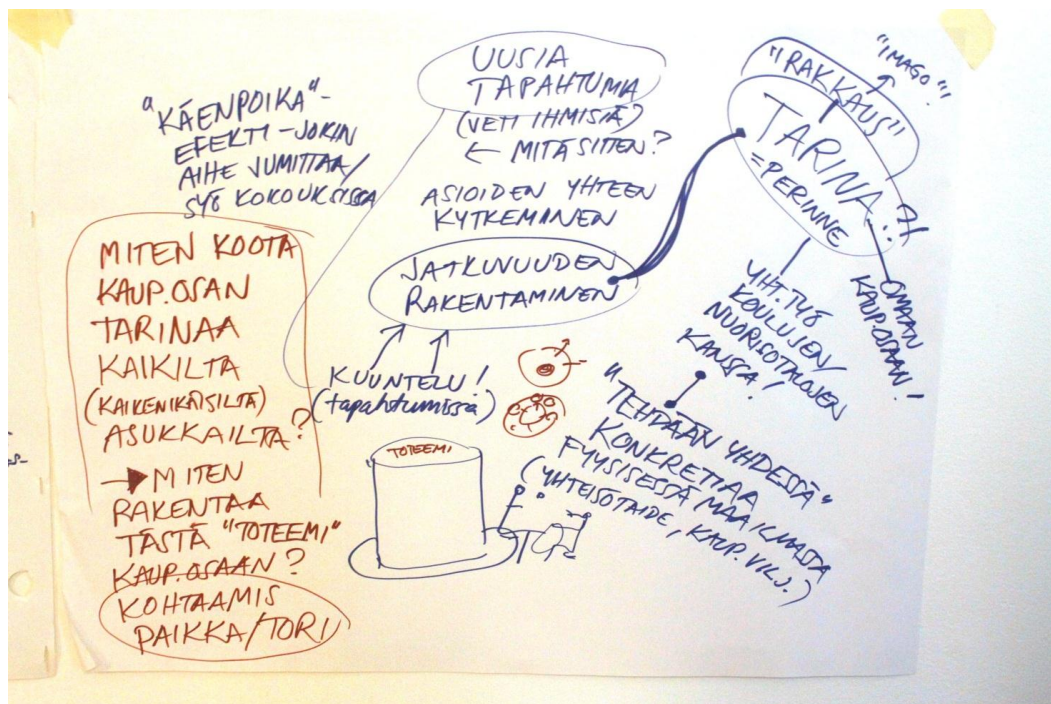 "KÄENPOIKA"-
EFEKTI - JOKIN
AIHE JUMITTAA/
SYÖ KOKOUKSISSA
MITEN KOOTA
KAUP.OSAN
TARINAA
KAIKILTA
(KAIKENIKÄISILTÄ)
ASUKKAILTA?
→ MITEN
RAKENTAA
TÄSTÄ "TOTEEMI"
KAUP.OSAAN?
KOHTAAMIS
PAIKKA/TORI
UUSIA
TAPAHTUMIA
(VETI IHMISIÄ)
← MITÄ SITTEN?
ASIOIDEN YHTEEN
KYTKEMINEN
JATKUVUUDEN
RAKENTAMINEN
KUUNTELU!
(tapahtumissa)
TOTEEMI
"IMAGO"!
"RAKKAUS"
TARINA
=PERINNE
OMAAN
KAUP.OSAAN!
YHT.TYÖ
KOULUJEN/
NUORISOTALOJEN
KANSSA!
"TEHDÄÄN YHDESSÄ"
KONKRETIAA
FYYSISESSÄ MAAILMASSA
(YHTEISÖTAIDE, KAUP.VILJ.)